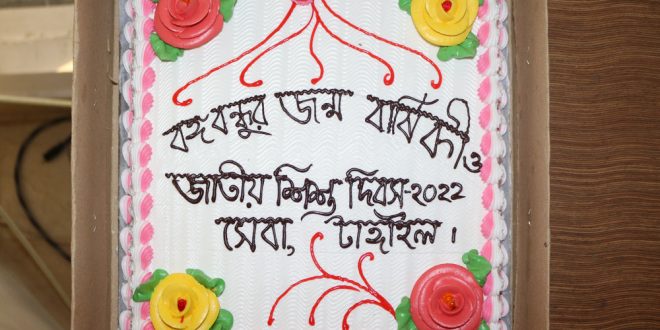 বঙ্গবন্ধুর জন্ম বার্ষিকী ও
জাতীয় শিশু দিবস-২০২২
সেবা, টাঙ্গাইল।